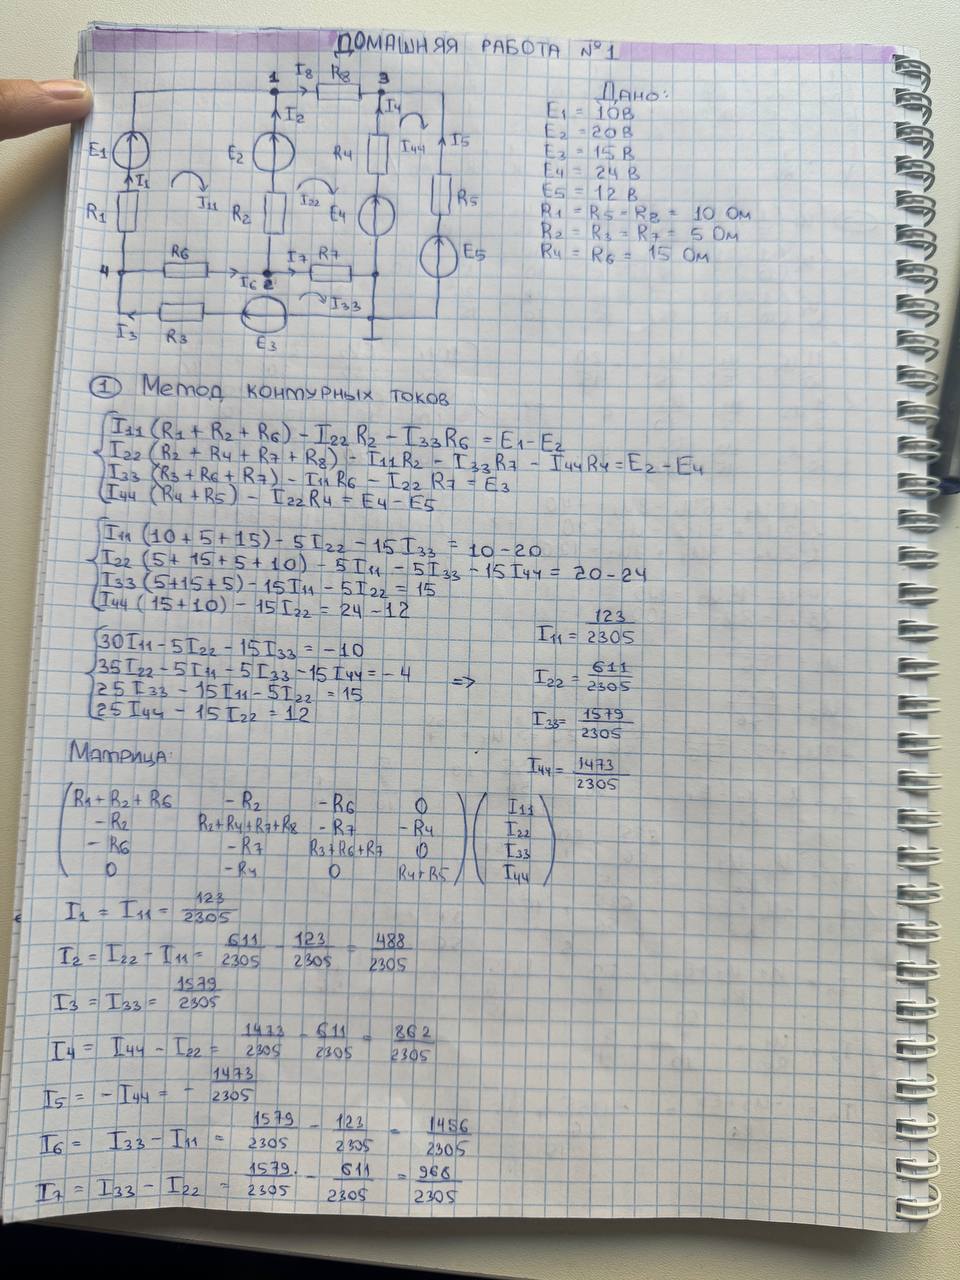 ДОМАШНЯЯ РАБОТА №1
1 I8 R8 3
I2 I4 I44 I5
E1 E2 R4
I1 I11 I22
R1 R2 E4 R5
R6 I7 R7 E5
4 I6 2 I33
I3 R3 E3
Дано:
E1 = 10В
E2 = 20В
E3 = 15 В
E4 = 24 В
E5 = 12 В
R1 = R5 = R8 = 10 Ом
R2 = R3 = R7 = 5 Ом
R4 = R6 = 15 Ом
① Метод контурных токов
I11 (R1 + R2 + R6) - I22 R2 - I33 R6 = E1 - E2
I22 (R2 + R4 + R7 + R8) - I11 R2 - I33 R7 - I44 R4 = E2 - E4
I33 (R3 + R6 + R7) - I11 R6 - I22 R7 = E3
I44 (R4 + R5) - I22 R4 = E4 - E5
I11 (10 + 5 + 15) - 5 I22 - 15 I33 = 10 - 20
I22 (5 + 15 + 5 + 10) - 5 I11 - 5 I33 - 15 I44 = 20 - 24
I33 (5+15+5) - 15 I11 - 5 I22 = 15
I44 (15 + 10) - 15 I22 = 24 - 12
30 I11 - 5 I22 - 15 I33 = -10
35 I22 - 5 I11 - 5 I33 - 15 I44 = - 4
25 I33 - 15 I11 - 5 I22 = 15
25 I44 - 15 I22 = 12
=>
I11 = 123/2305
I22 = 611/2305
I33 = 1579/2305
I44 = 1473/2305
Матрица:
R1 + R2 + R6 - R2 - R6 0 I11
- R2 R2 + R4 + R7 + R8 - R7 - R4 I22
- R6 - R7 R3 + R6 + R7 0 I33
0 - R4 0 R4 + R5 I44
I1 = I11 = 123/2305
I2 = I22 - I11 = 611/2305 - 123/2305 = 488/2305
I3 = I33 = 1579/2305
I4 = I44 - I22 = 1473/2305 - 611/2305 = 862/2305
I5 = - I44 = - 1473/2305
I6 = I33 - I11 = 1579/2305 - 123/2305 = 1456/2305
I7 = I33 - I22 = 1579/2305 - 611/2305 = 968/2305